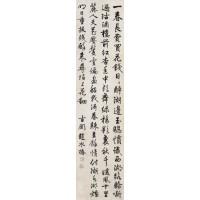 一春長費買花錢日日醉湖邊玉驄慣識西湖路驕嘶
過沽酒樓前紅杏香中歌舞綠楊影裏秋千暖風十里
麗人天花壓鬢雲偏畫船載春歸去餘情付湖水湖煙
明日重扶殘醉來尋陌上花鈿